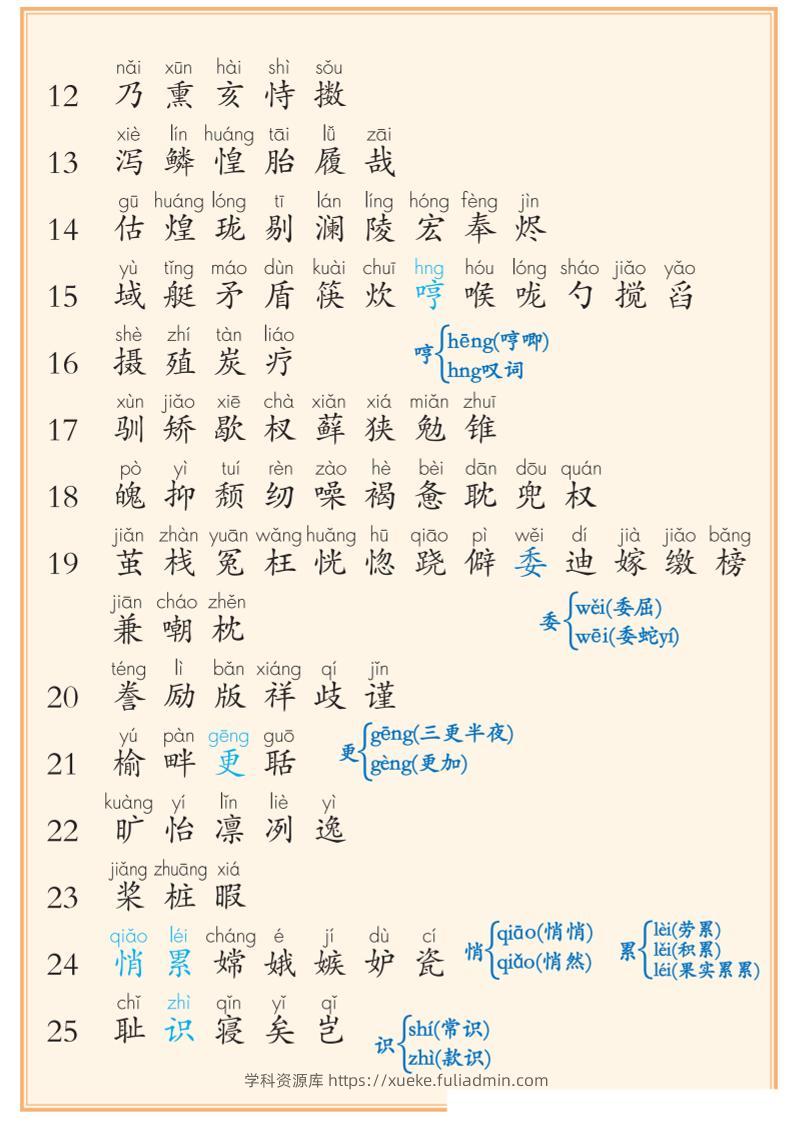 nǎi xūn hài shì sǒu
12 乃 熏 亥 恃 擞
xiè lín huáng tāi lǚ zāi
13 泻 鳞 惶 胎 履 哉
gū huáng lóng tī lán líng hóng fèng jìn
14 估 煌 珑 剔 澜 陵 宏 奉 烬
yù tǐng máo dùn kuài chuī hng hóu lóng sháo jiǎo yǎo
15 域 艇 矛 盾 筷 炊 哼 喉 咙 勺 搅 舀
shè zhí tàn liáo
16 摄 殖 炭 疗
哼 hēng(哼唧)
hng叹词
xùn jiǎo xiē chà xiǎn xiá miǎn zhuī
17 驯 矫 歇 杈 藓 狭 勉 锥
pò yì tuí rèn zào hè bèi dān dōu quán
18 魄 抑 颓 纫 噪 褐 惫 耽 兜 权
jiǎn zhàn yuān wǎng huǎng hū qiāo pì wěi dí jià jiǎo bǎng
19 茧 栈 冤 枉 恍 惚 跷 僻 委 迪 嫁 缴 榜
jiān cháo zhěn
兼 嘲 枕
委 wěi(委屈)
wēi(委蛇yí)
téng lì bǎn xiáng qí jǐn
20 誊 励 版 祥 歧 谨
yú pàn gēng guō
21 榆 畔 更 聒
更 gēng(三更半夜)
gèng(更加)
kuàng yí lǐn liè yì
22 旷 怡 凛 冽 逸
jiǎng zhuāng xiá
23 桨 桩 暇
qiǎo léi cháng é jí dù cí
24 悄 累 嫦 娥 嫉 妒 瓷
悄 qiāo(悄悄)
qiǎo(悄然)
累 lèi(劳累)
lěi(积累)
léi(果实累累)
chǐ zhì qǐn yǐ qǐ
25 耻 识 寝 矣 岂
识 shí(常识)
zhì(款识)
学科资源库 https://xueke.fuliadmin.com